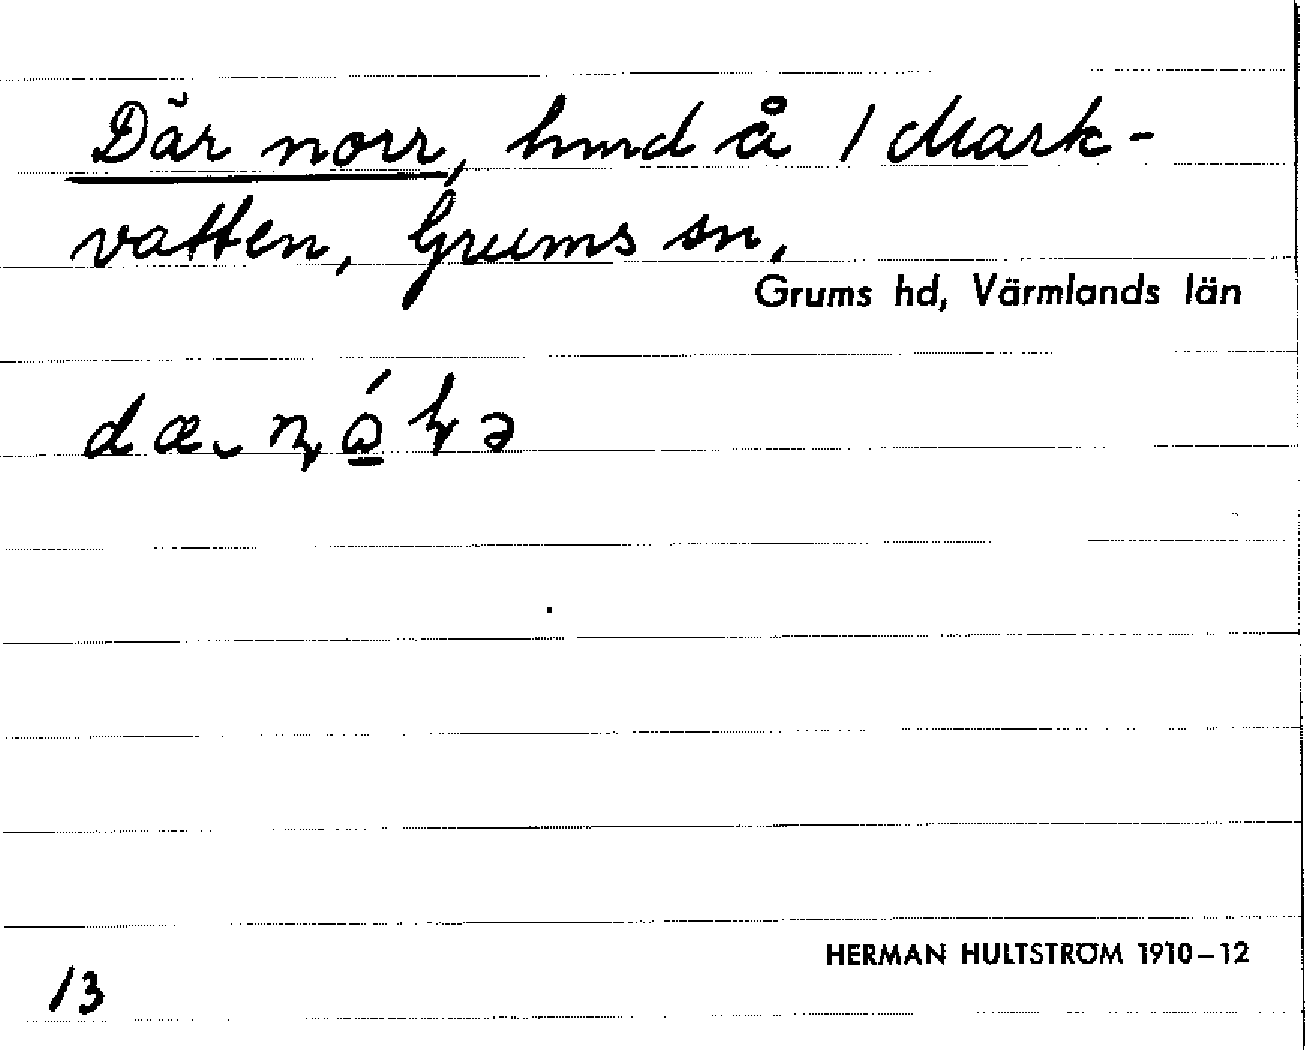 Där norr, hmd å 1 Mark-
vatten, Grums sn,
Grums hd, Värmlands län
HERMAN HULTSTRÖM 1910–12
13